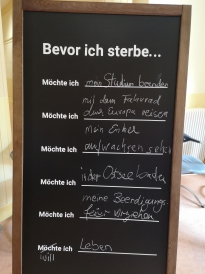 Bevor ich sterbe...
Möchte ich mein Studium beenden
mit dem Fahrrad
Möchte ich durch Europa reisen
mein Enkel
Möchte ich aufwachsen sehen
Möchte ich in der Ostsee
meine Beerdigungs-
Möchte ich feier
Möchte ich Leben
will